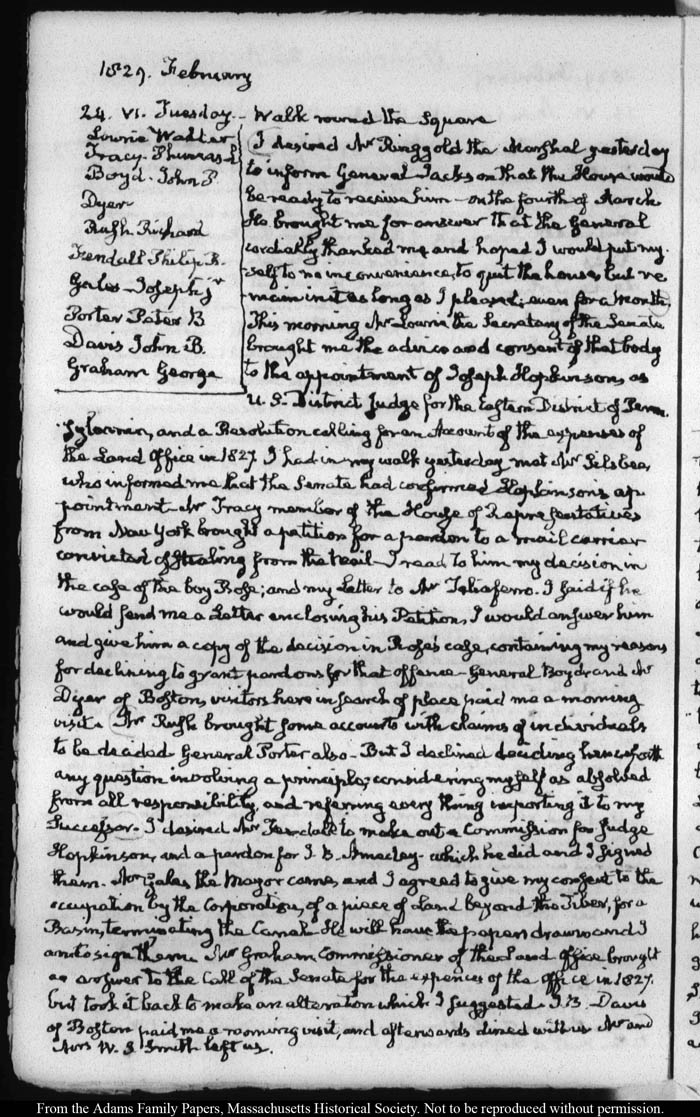 1829. February
24. VI. Tuesday. Walk round the Square
Lowrie Walter
Tracy. Phineas L
Boyd. John P.
Dyer
Rush. Richard
Fendall Philip R.
Gales Joseph jr
Porter Peter B
Davis John B.
Graham George
I desired Mr Ringgold the Marshal yesterday
to inform General Jackson that the House would
be ready to receive him on the fourth of March
He brought me for answer that the General
cordially thanked me, and hoped I would put my-
self to no inconvenience, to quit the house, but re
main in it as long as I pleased; even for a month.
This morning Mr Lowrie the Secretary of the Senate
brought me the advice and consent of that body
to the appointment of Joseph Hopkinson, as
U. S. District Judge for the Eastern District of Penn-
sylvania, and a Resolution calling for an Account of the expenses of
the Land Office in 1827. I had in my walk yesterday met Mr Silsbee,
who informed me that the Senate had confirmed Hopkinson's ap-
pointment. Mr Tracy member of the House of Representatives
from New York brought a petition for a pardon to a mail carrier
convicted of stealing from the mail. I read to him my decision in
the case of the boy Rose; and my Letter to Mr Taliaferro. I said if he
would send me a Letter enclosing his Petition, I would answer him
and give him a copy of the decision in Rose's case, containing my reasons
for declining to grant pardons for that offence. General Boyd and Mr
Dyer of Boston, visitors here in search of place paid me a morning
visit. Mr Rush brought some accounts with claims of individuals
to be decided General Porter also. But I declined deciding henceforth
any question involving a principle; considering myself as absolved
from all responsibility, and referring every thing importing it to my
Successor. I desired Mr Fendall to make out a Commission for Judge
Hopkinson, and a pardon for J. B. which he did and I signed
them. Mr Gales, the Mayor came, and I agreed to give my consent to the
occupation by the Corporation, of a piece of Land beyond the Tiber, for a
Basin, terminating the Canal. He will have the papers drawn and I
am to sign them. Mr Graham Commissioner of the Land Office brought
an answer to the Call of the Senate for the expences of the Office in 1827.
but took it back to make an alteration which I suggested. J. B. Davis
of Boston paid me a morning visit, and afterwards dined with us Mr and
Mrs W. S. Smith left us.
From the Adams Family Papers, Massachusetts Historical Society. Not to be reproduced without permission.